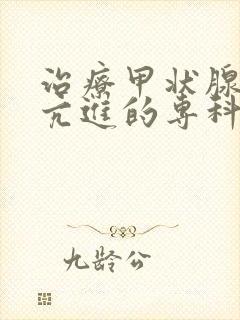 治療甲状腺
亢進的專科
九龄公